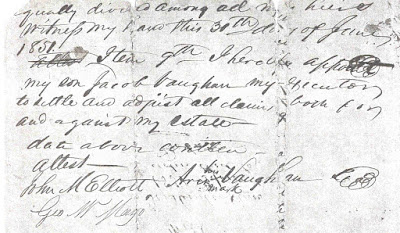 equally divided among all my heirs
Witness my hand this 30th day of June
1851.
Item 9th I hereby appoint
my son Jacob Vaughan my executor
to settle and adjust all claims both for
and against my estate
date above written
Attest
John M Elliott Aris his Vaughan Seal
mark
Geo W Mayo